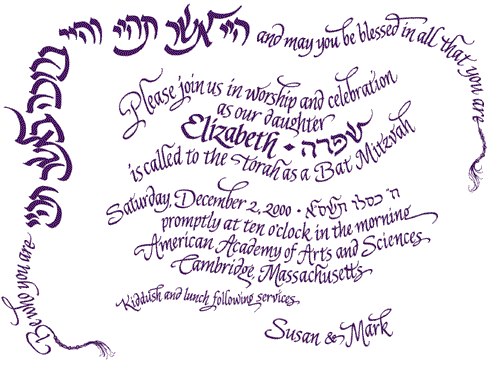 היי אשר תהיי והיי ברוכה באשר תהיי
Be who you are
and may you be blessed in all that you are
Please join us in worship and celebration
as our daughter
Elizabeth • שפרה
is called to the Torah as a Bat Mitzvah
Saturday, December 2, 2000 • ה' כסלו תשס"א
promptly at ten o'clock in the morning
American Academy of Arts and Sciences
Cambridge, Massachusetts
Kiddush and lunch following services
Susan & Mark